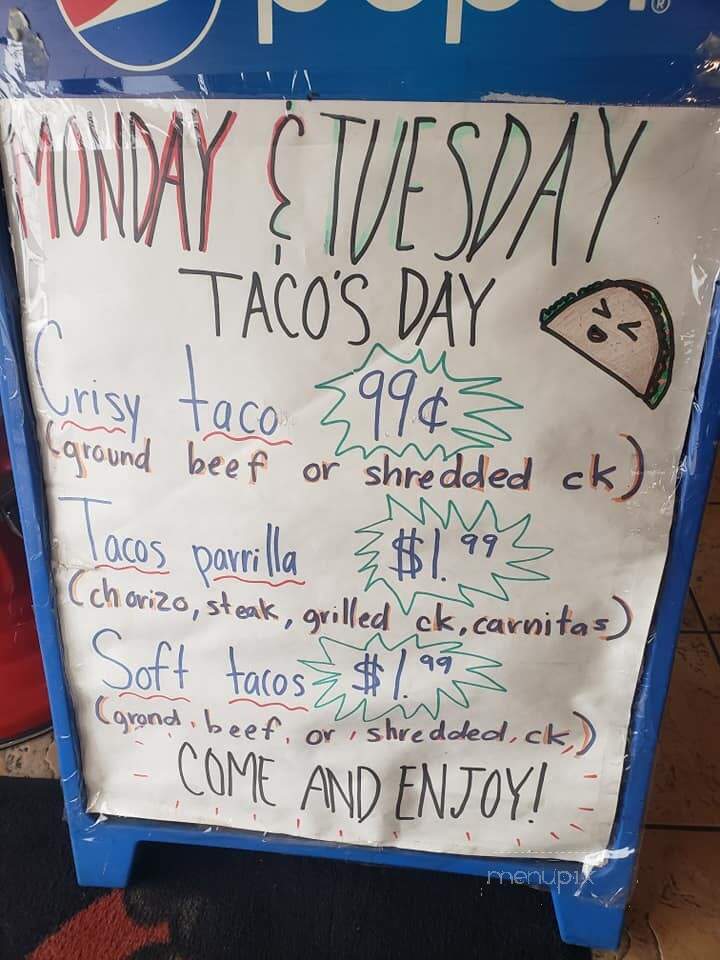 pepsi®
MONDAY & TUESDAY
TACO'S DAY
Crisy taco 99¢
(ground beef or shredded ck)
Tacos parrilla $1.99
(chorizo, steak, grilled ck, carnitas)
Soft tacos $1.99
(grond, beef, or, shredded, ck,)
COME AND ENJOY!
menupix